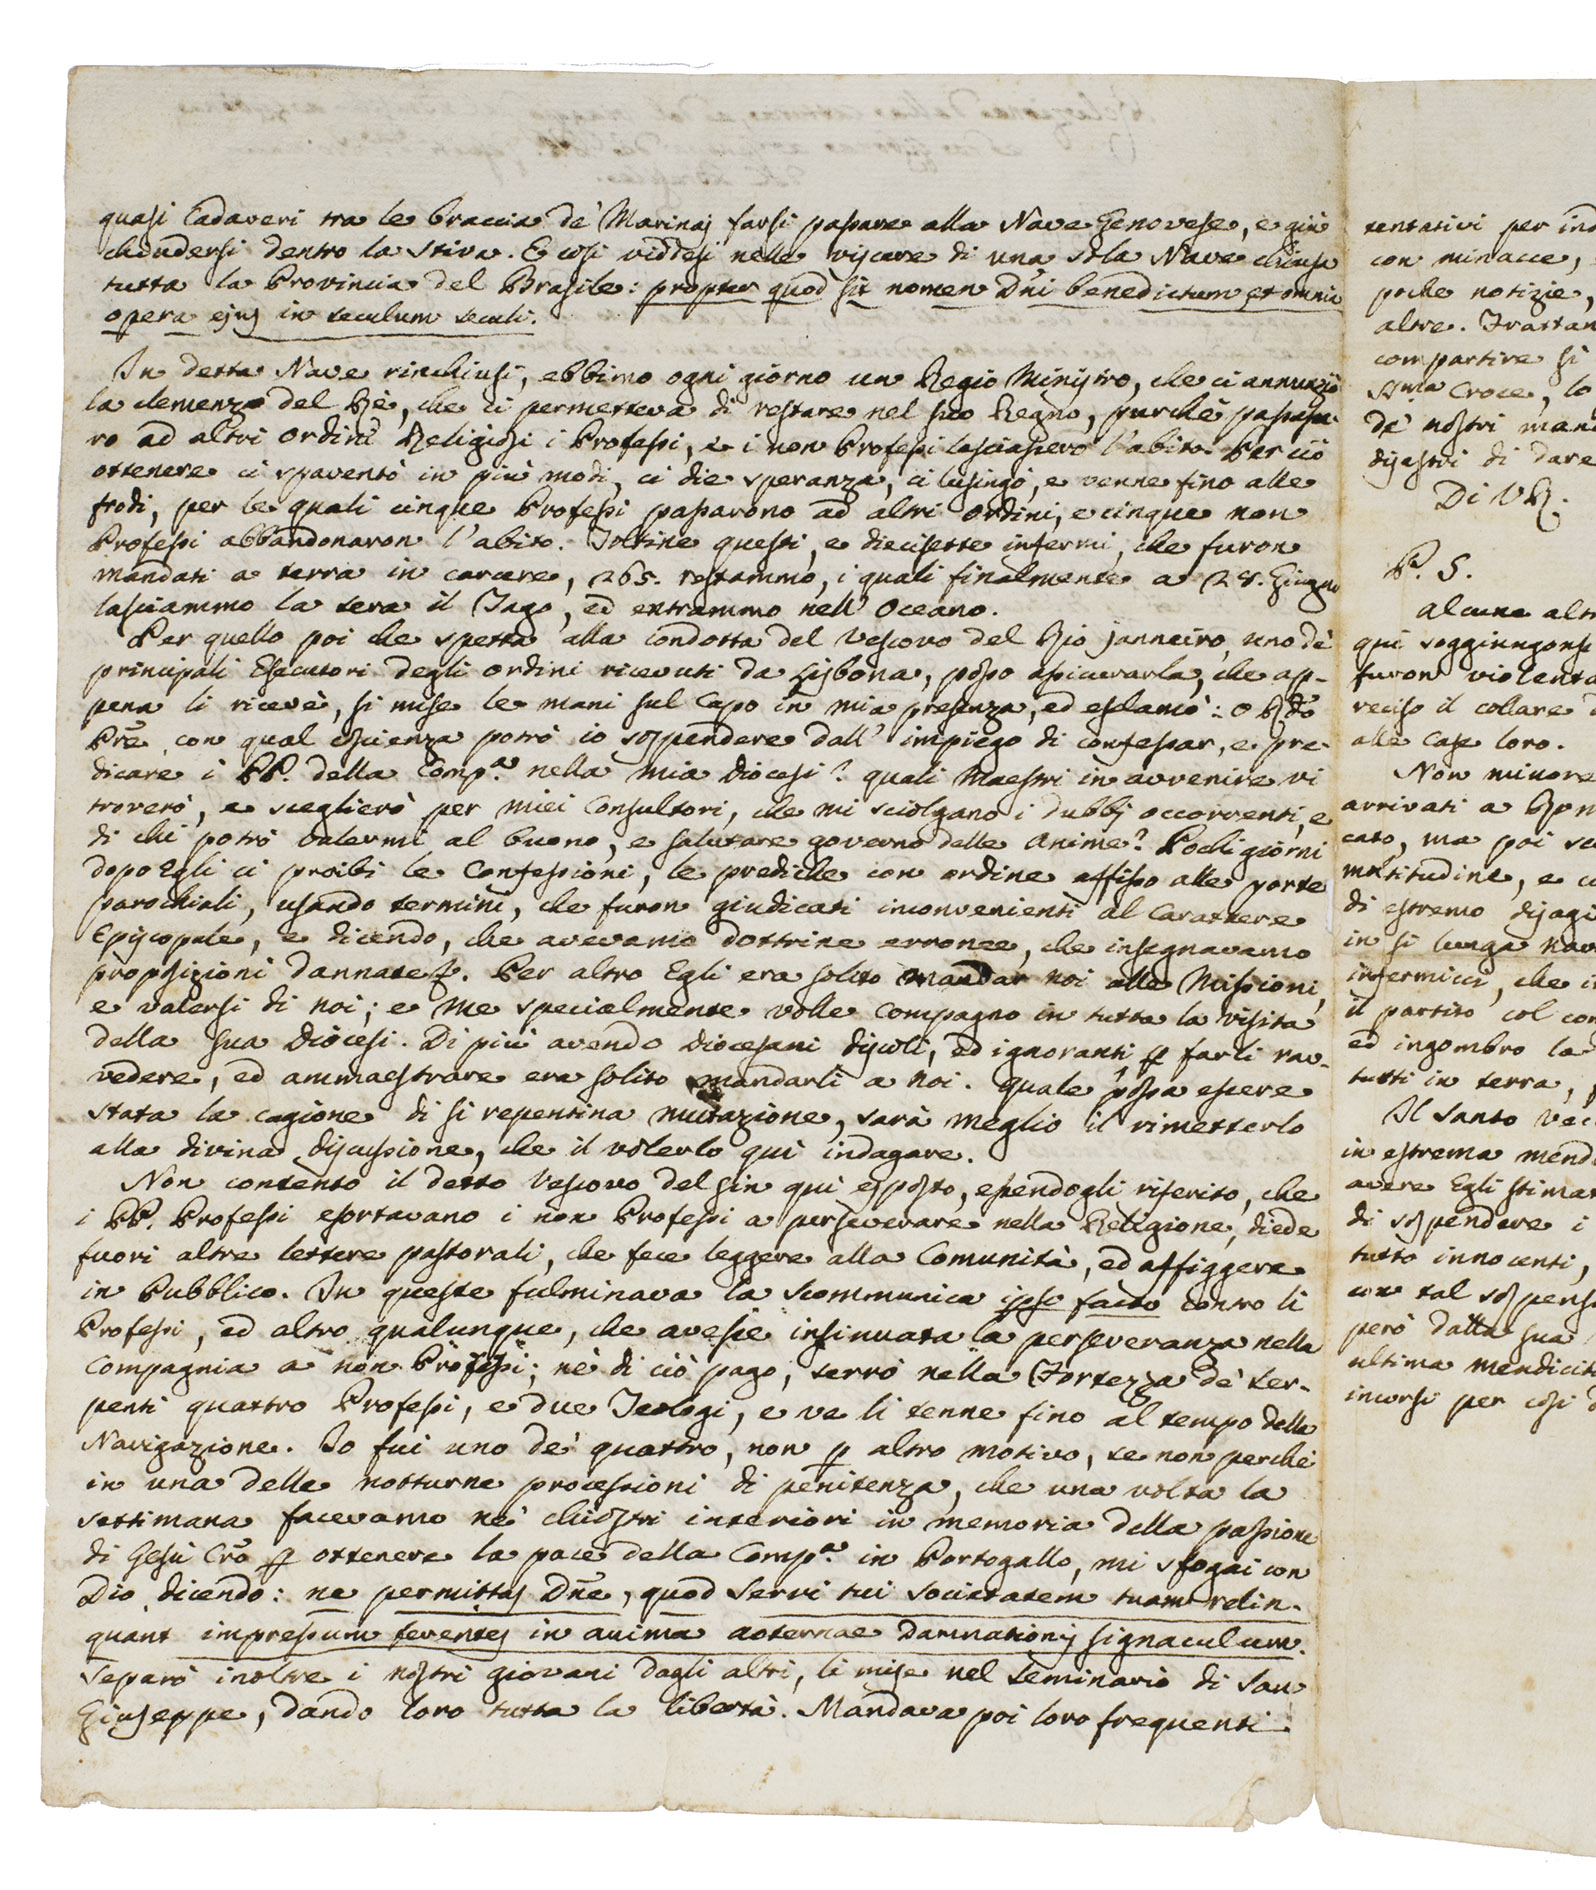 quasi Cadaveri tra le braccia de' Marinaj farsi passare alla Nave Genovese, e giù
chiudersi dentro la stiva. E così viddesi nelle viscere di una sola Nave chiusa
tutta la Provincia del Brasile: propter quod sit nomen Dñi benedictum et omnia
opera ejus in seculum seculi.
In detta Nave rinchiusi, ebbimo ogni giorno un Regio Ministro, che ci annunziò
la clemenza del Rè, che ci permetteva di restare nel suo Regno, purchè passasse-
ro ad altri ordini Religiosi i Professi, e i non Professi lasciassero l'abito. Per ciò
ottenere ci spaventò in più modi, ci diè speranza, ci lusingò, e venne fino alle
frodi, per le quali cinque Professi passarono ad altri ordini, e cinque non
Professi abbandonaron l'abito. Toltine questi, e diecisette infermi, che furon
mandati a terra in carcere, 265. restammo, i quali finalmente a 28. Giugno
lasciammo la sera il Tago, ed entrammo nell'Oceano.
Per quello poi che spetta alla condotta del Vescovo del Rio Janneiro, uno de'
principali Esecutori degli ordini ricevuti da Lisbona, posso assicurarla, che ap-
pena li ricevè, si mise le mani sul Capo in mia presenza, ed esclamò: O R.do
Prẽ, con qual coscienza potrò io sospendere dall'impiego di confessar, e pre-
dicare i PP. della Comp.a nella mia Diocesi? quali Maestri in avvenire vi
troverò, e sceglierò per miei Consultori, che mi sciolgano i dubbj occorrenti, e
di chi potrò valermi al buono, e salutare governo delle Anime? Pochi giorni
dopo Egli ci proibì le Confessioni, le prediche con ordine affisso alle porte
parochiali, usando termini, che furon giudicati inconvenienti al Carattere
Episcopale, e dicendo, che avevamo dottrine erronee, che insegnavamo
proposizioni dannate. Per altro Egli era solito mandar noi alle Missioni,
e valersi di noi; e me specialmente volle Compagno in tutta la visita
della sua Diocesi. Di più avendo diocesani discoli, ed ignoranti, ꝑ farli rav-
vedere, ed ammaestrare era solito mandarli a noi. Quale possa essere
stata la cagione di sì repentina mutazione, sarà meglio il rimetterlo
alla divina discussione, che il volerlo qui indagare.
Non contento il detto Vescovo del fin qui esposto, essendogli riferito, che
i PP. Professi esortavano i non Professi a perseverare nella Religione, diede
fuori altre lettere pastorali, che fece leggere alla Comunità, ed affiggere
in Pubblico. In queste fulminava la scommunica ipso facto contro li
Professi, ed altro qualunque, che avesse insinuata la perseveranza nella
Compagnia a non Professi; nè di ciò pago, serrò nella Fortezza de' Ser-
penti quattro Professi, e due Teologi, e ve li tenne fino al tempo della
Navigazione. Io fui uno de' quattro, non ꝑ altro motivo, se non perchè
in una delle notturne processioni di penitenza, che una volta la
settimana facevamo ne' chiostri interiori in memoria della passione
di Gesù Crõ ꝑ ottenere la pace della Comp.a in Portogallo, mi sfogai con
Dio, dicendo: ne permittas Dñe, quod servi tui societatem tuam relin-
quant impressum ferentes in anima aeternae damnationis signaculum.
Separò inoltre i nostri giovani dagli altri, li mise nel Seminario di San
Giuseppe, dando loro tutta la libertà. Mandava poi loro frequenti
tentativi per ind
con minacce,
poche notizie,
altre. Trattan
compartire si
SSma Croce, lo
de' nostri man
disastri di dare
Di VR.
P. S.
Alcune altr
qui soggiungonsi
furon violenta
reciso il collare
alle case loro.
Non minore
arrivati a Rom
cato, ma poi
moltitudine, e
di estremo disagi
in sì lunga nav
infermicci, che
il partito col con
ed ingombro la
tutti in terra,
Il Santo Vec
in estrema mendi
avere Egli stimat
di sospendere i
tutto innocenti,
con tal sospens
però dalla sua
ultima mendicit
incorsi per così